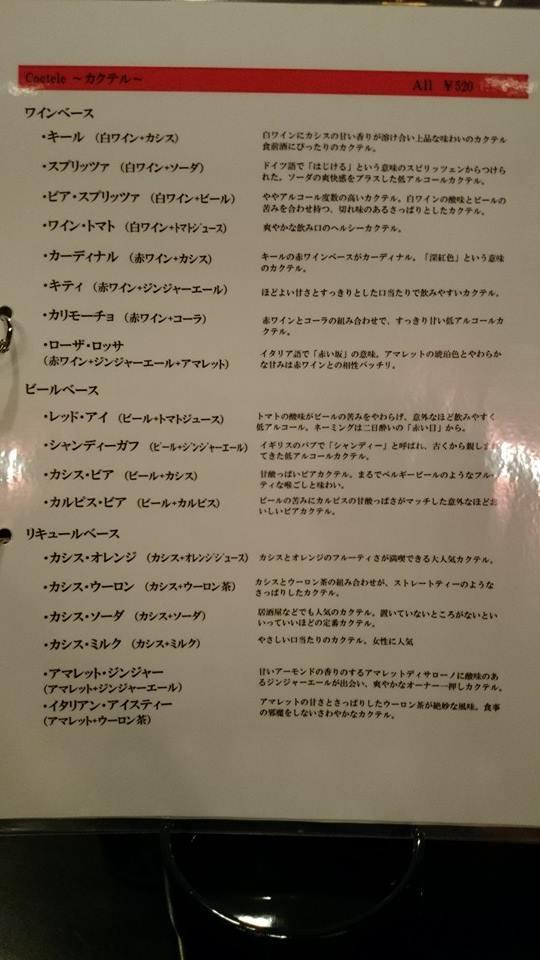 Coctele ～カクテル～
All ￥520
ワインベース
・キール （白ワイン+カシス）
白ワインにカシスの甘い香りが溶け合い上品な味わいのカクテル
食前酒にぴったりのカクテル。
・スプリッツァ （白ワイン+ソーダ）
ドイツ語で「はじける」という意味のスピリッツェンからつけら
れた。ソーダの爽快感をプラスした低アルコールカクテル。
・ビア・スプリッツァ （白ワイン+ビール）
ややアルコール度数の高いカクテル。白ワインの酸味とビールの
苦みを合わせ持つ、切れ味のあるさっぱりとしたカクテル。
・ワイン・トマト （白ワイン+トマトジュース）
爽やかな飲み口のヘルシーカクテル。
・カーディナル （赤ワイン+カシス）
キールの赤ワインベースがカーディナル。「深紅色」という意味
のカクテル。
・キティ （赤ワイン+ジンジャーエール）
ほどよい甘さとすっきりとした口当たりで飲みやすいカクテル。
・カリモーチョ （赤ワイン+コーラ）
赤ワインとコーラの組み合わせで、すっきり甘い低アルコールカ
クテル。
・ローザ・ロッサ
（赤ワイン+ジンジャーエール+アマレット）
イタリア語で「赤い坂」の意味。アマレットの琥珀色とやわらか
な甘みは赤ワインとの相性バッチリ。
ビールベース
・レッド・アイ （ビール+トマトジュース）
トマトの酸味がビールの苦みをやわらげ、意外なほど飲みやすく
低アルコール。ネーミングは二日酔いの「赤い目」から。
・シャンディーガフ （ビール+ジンジャーエール）
イギリスのパブで「シャンディー」と呼ばれ、古くから親しまれ
てきた低アルコールカクテル。
・カシス・ビア （ビール+カシス）
甘酸っぱいビアカクテル。まるでベルギービールのようなフルー
ティな喉ごしと味わい。
・カルピス・ビア （ビール+カルピス）
ビールの苦みにカルピスの甘酸っぱさがマッチした意外なほどお
いしいビアカクテル。
リキュールベース
・カシス・オレンジ （カシス+オレンジジュース）
カシスとオレンジのフルーティさが満喫できる大人気カクテル。
・カシス・ウーロン （カシス+ウーロン茶）
カシスとウーロン茶の組み合わせが、ストレートティーのような
さっぱりしたカクテル。
・カシス・ソーダ （カシス+ソーダ）
居酒屋などでも人気のカクテル。置いていないところがないとい
っていいほどの定番カクテル。
・カシス・ミルク （カシス+ミルク）
やさしい口当たりのカクテル。女性に人気
・アマレット・ジンジャー
（アマレット+ジンジャーエール）
甘いアーモンドの香りのするアマレットディサローノに酸味のあ
るジンジャーエールが出会い、爽やかなオーナー一押しカクテル。
・イタリアン・アイスティー
（アマレット+ウーロン茶）
アマレットの甘さとさっぱりしたウーロン茶が絶妙な風味。食事
の邪魔をしないさわやかなカクテル。